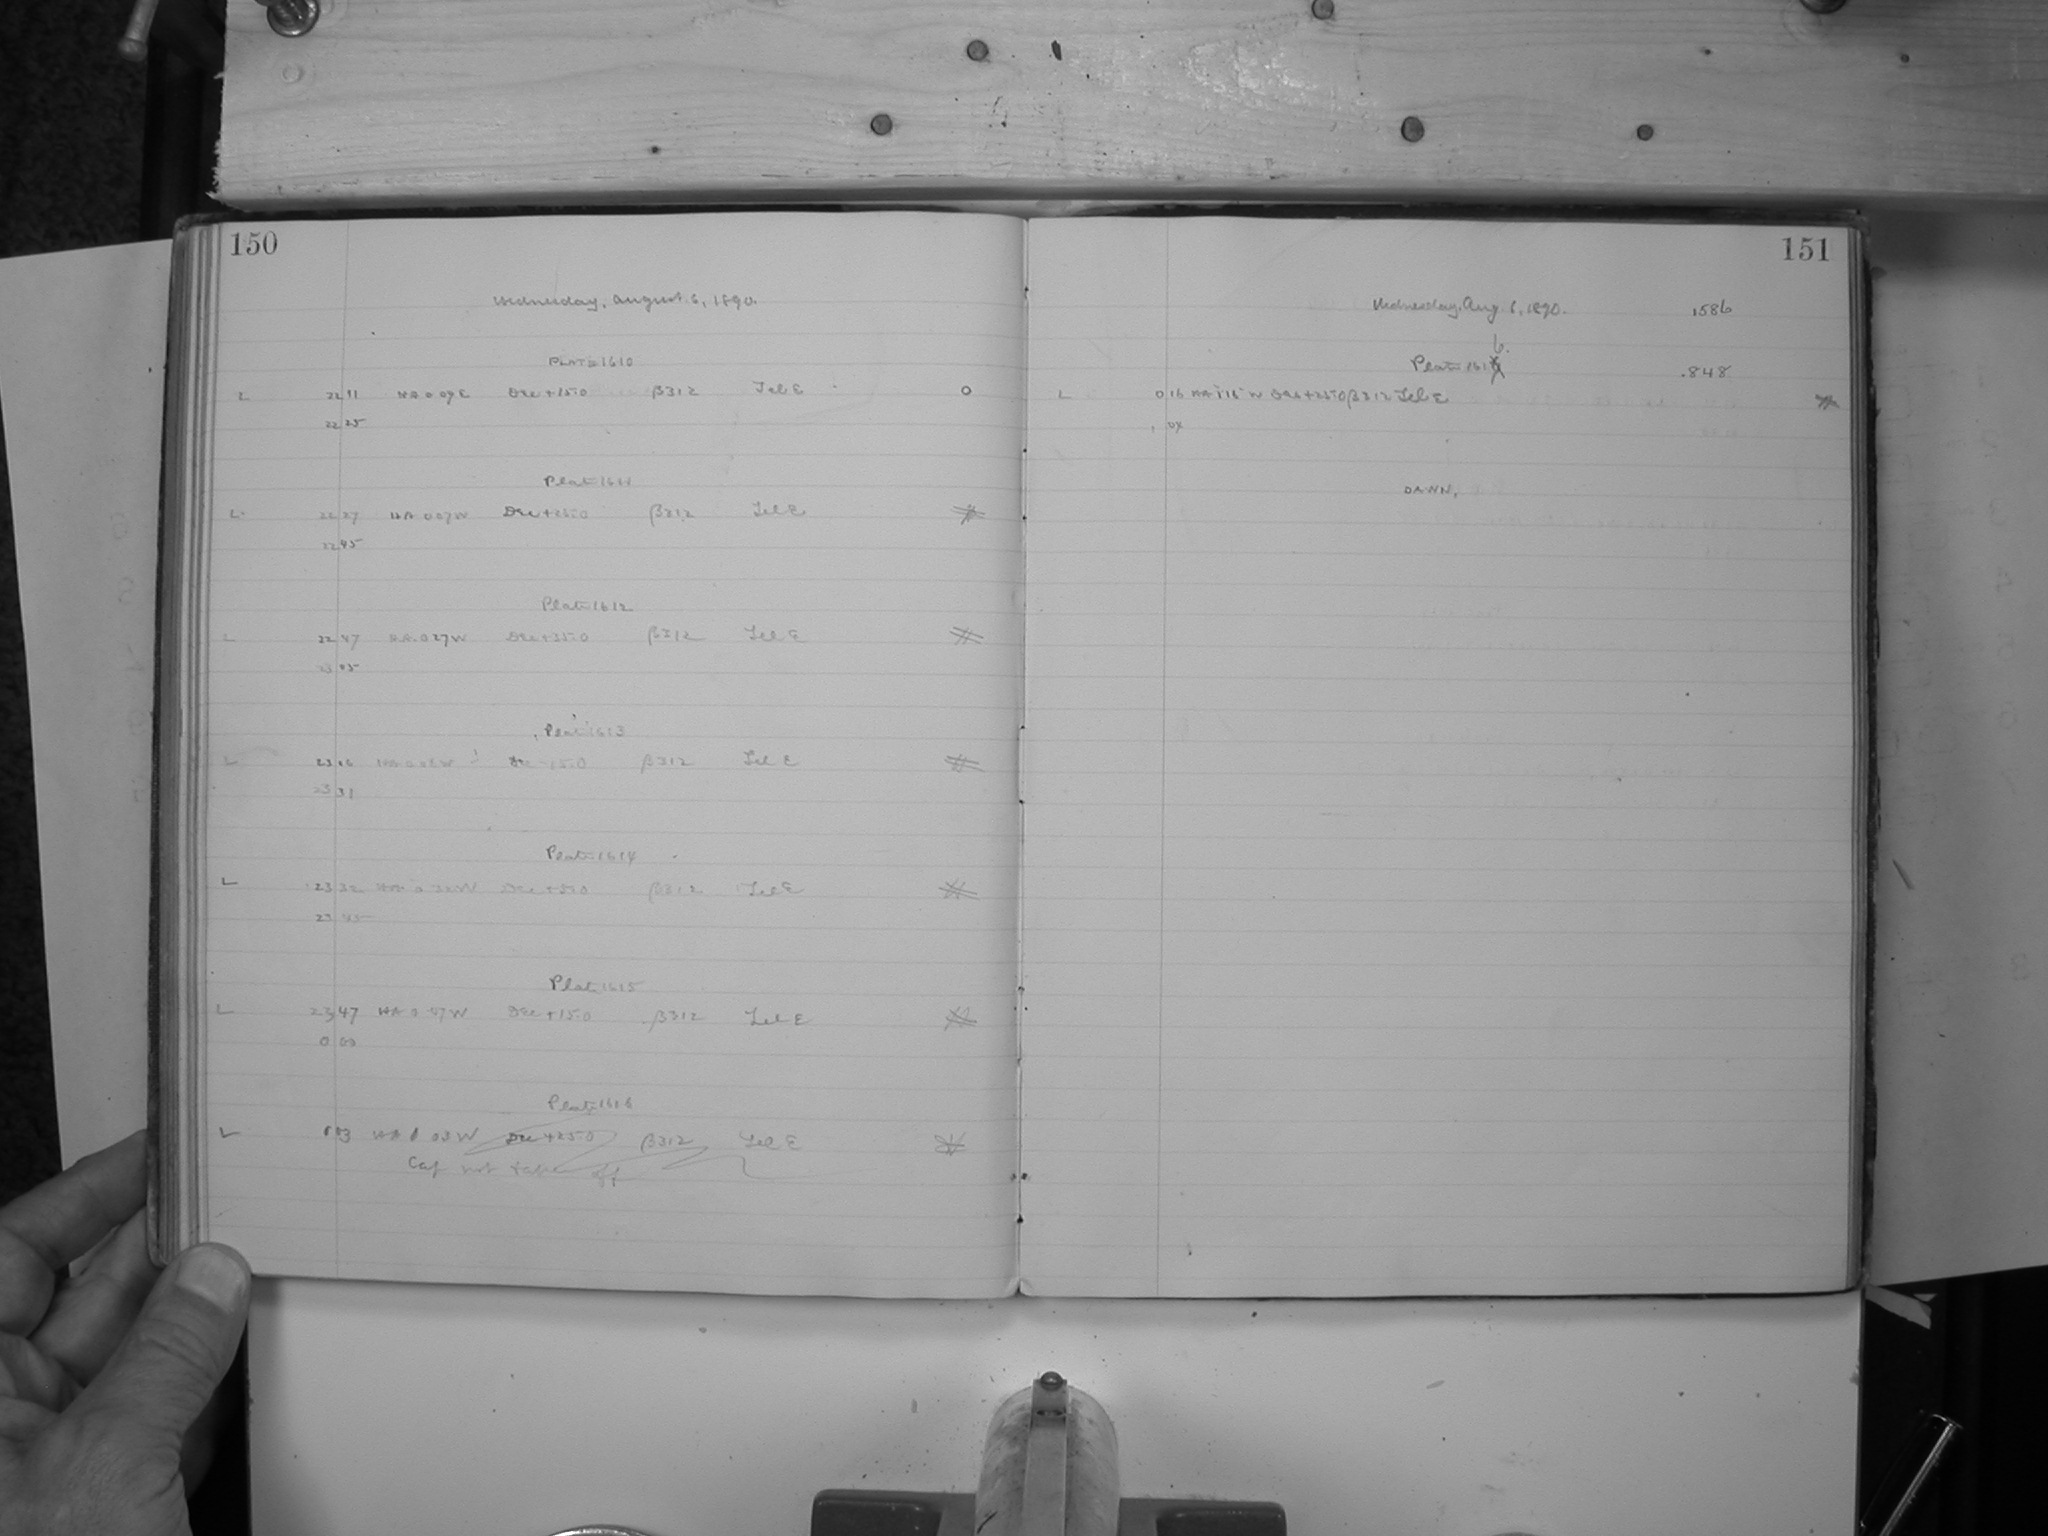 150
Wednesday, August 6, 1890.
PLATE 1610
L 22 11 HA 0 09 E Dec +15.0 β312 Tel E O
22 25
Plate 1611
L 22 27 HA 0 07 W Dec +25.0 β312 Tel E
22 45
Plate 1612
L 22 47 HA 0 27 W Dec +35.0 β312 Tel E
05
Plate 1613
L 23 16 β312 Tel E
23 31
Plate 1614
L 23 32 HA 0 32 W β312 Tel E
23 45
Plate 1615
L 23 47 HA 0 47 W Dec +15.0 β312 Tel E
0 00
Plate 1616
L HA 03 W Dec +25.0 β312 Tel E
Cap not taken off
151
Wednesday, Aug 6, 1890. .586
6.
Plate 161 .848
L 0 16 HA 1 15 W Dec +25.0 β312 Tel E
DAWN.